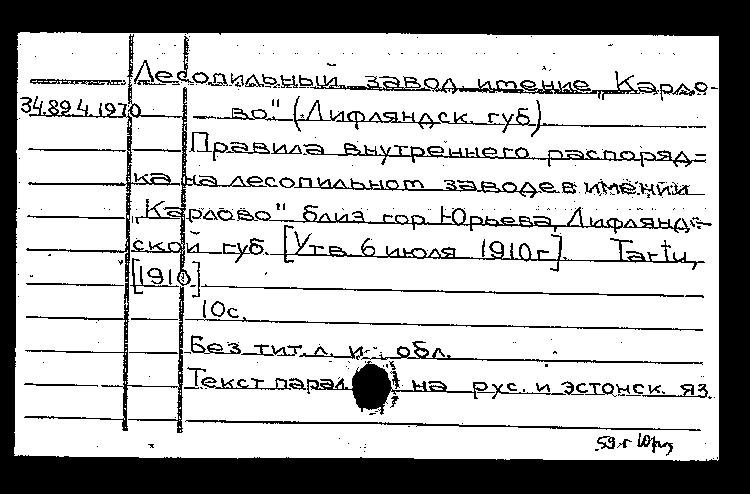 Лесопильный завод имение „Карло-
34.89.4.1970 во." (Лифляндск. губ)
Правила внутреннего распоряд=
ка на лесопильном заводе в имении
„Карлово" близ гор Юрьева, Лифлянд-
ской губ. [Утв. 6 июля 1910 г]. Tartu,
[1910]
10с.
Без тит. л. и обл.
Текст парал. на рус. и эстонск. яз.
59 г